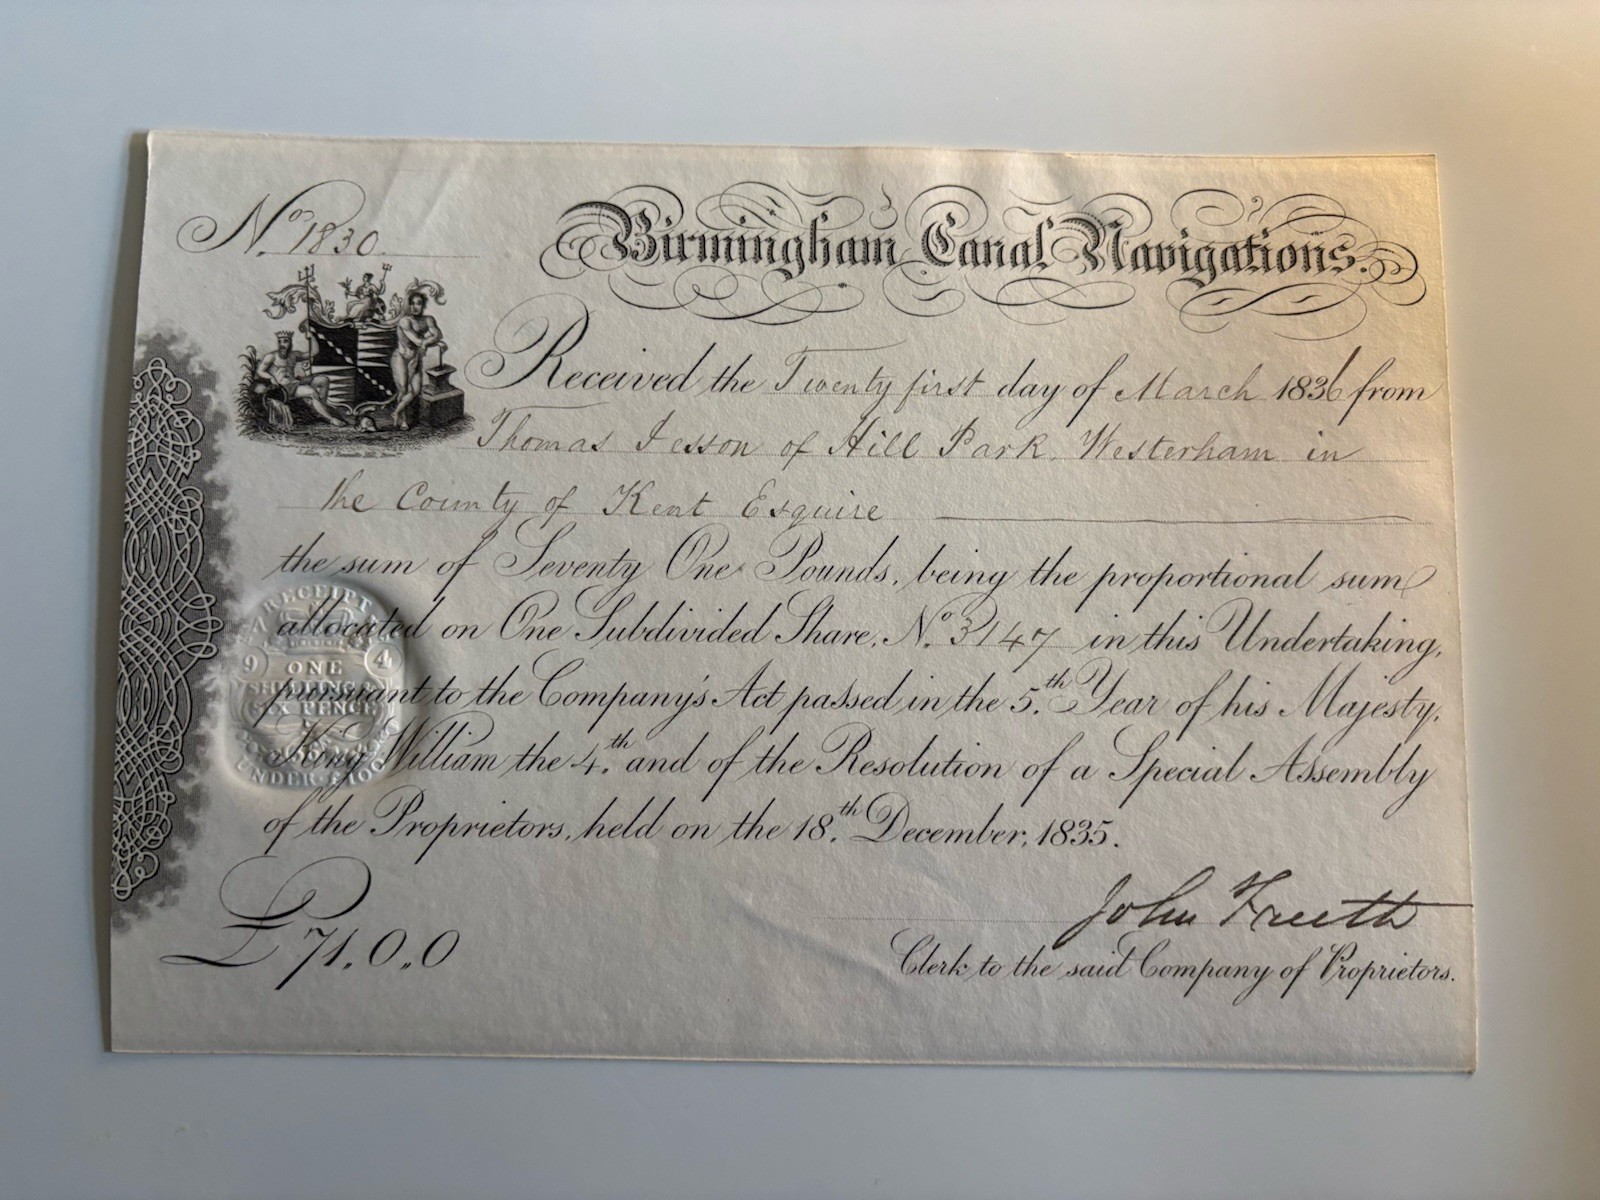 No. 1830
Birmingham Canal Navigations.
Received the Twenty first day of March 1836 from
Thomas Jesson of Hill Park, Westerham in
the County of Kent Esquire
the sum of Seventy One Pounds, being the proportional sum
allocated on One Subdivided Share, No. 3147 in this Undertaking,
pursuant to the Company's Act passed in the 5.th Year of his Majesty,
King William the 4.th and of the Resolution of a Special Assembly
of the Proprietors, held on the 18.th December, 1835.
£71.0.0
John Freeth
Clerk to the said Company of Proprietors.
RECEIPT
9 4
ONE
SHILLING &
SIX PENCE
UNDER £100